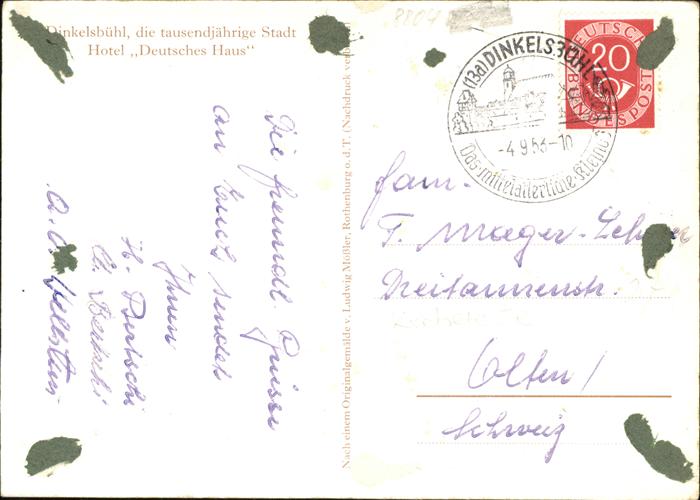 Dinkelsbühl, die tausendjährige Stadt
Hotel „Deutsches Haus"
Die freundl. Grüsse
an Euch sendet
Ihnen
H. Bertschi
Nach einem Originalgemälde v. Ludwig Mößler, Rothenburg o. d. T. (Nachdruck
8807
(13a) DINKELSBÜHL
-4.9.53-10
Das mittelalterliche Kleinod
DEUTSCHE
BUNDESPOST
20
Fam.
F. Maeger-
Dreitannenstr.
Olten /
Schweiz